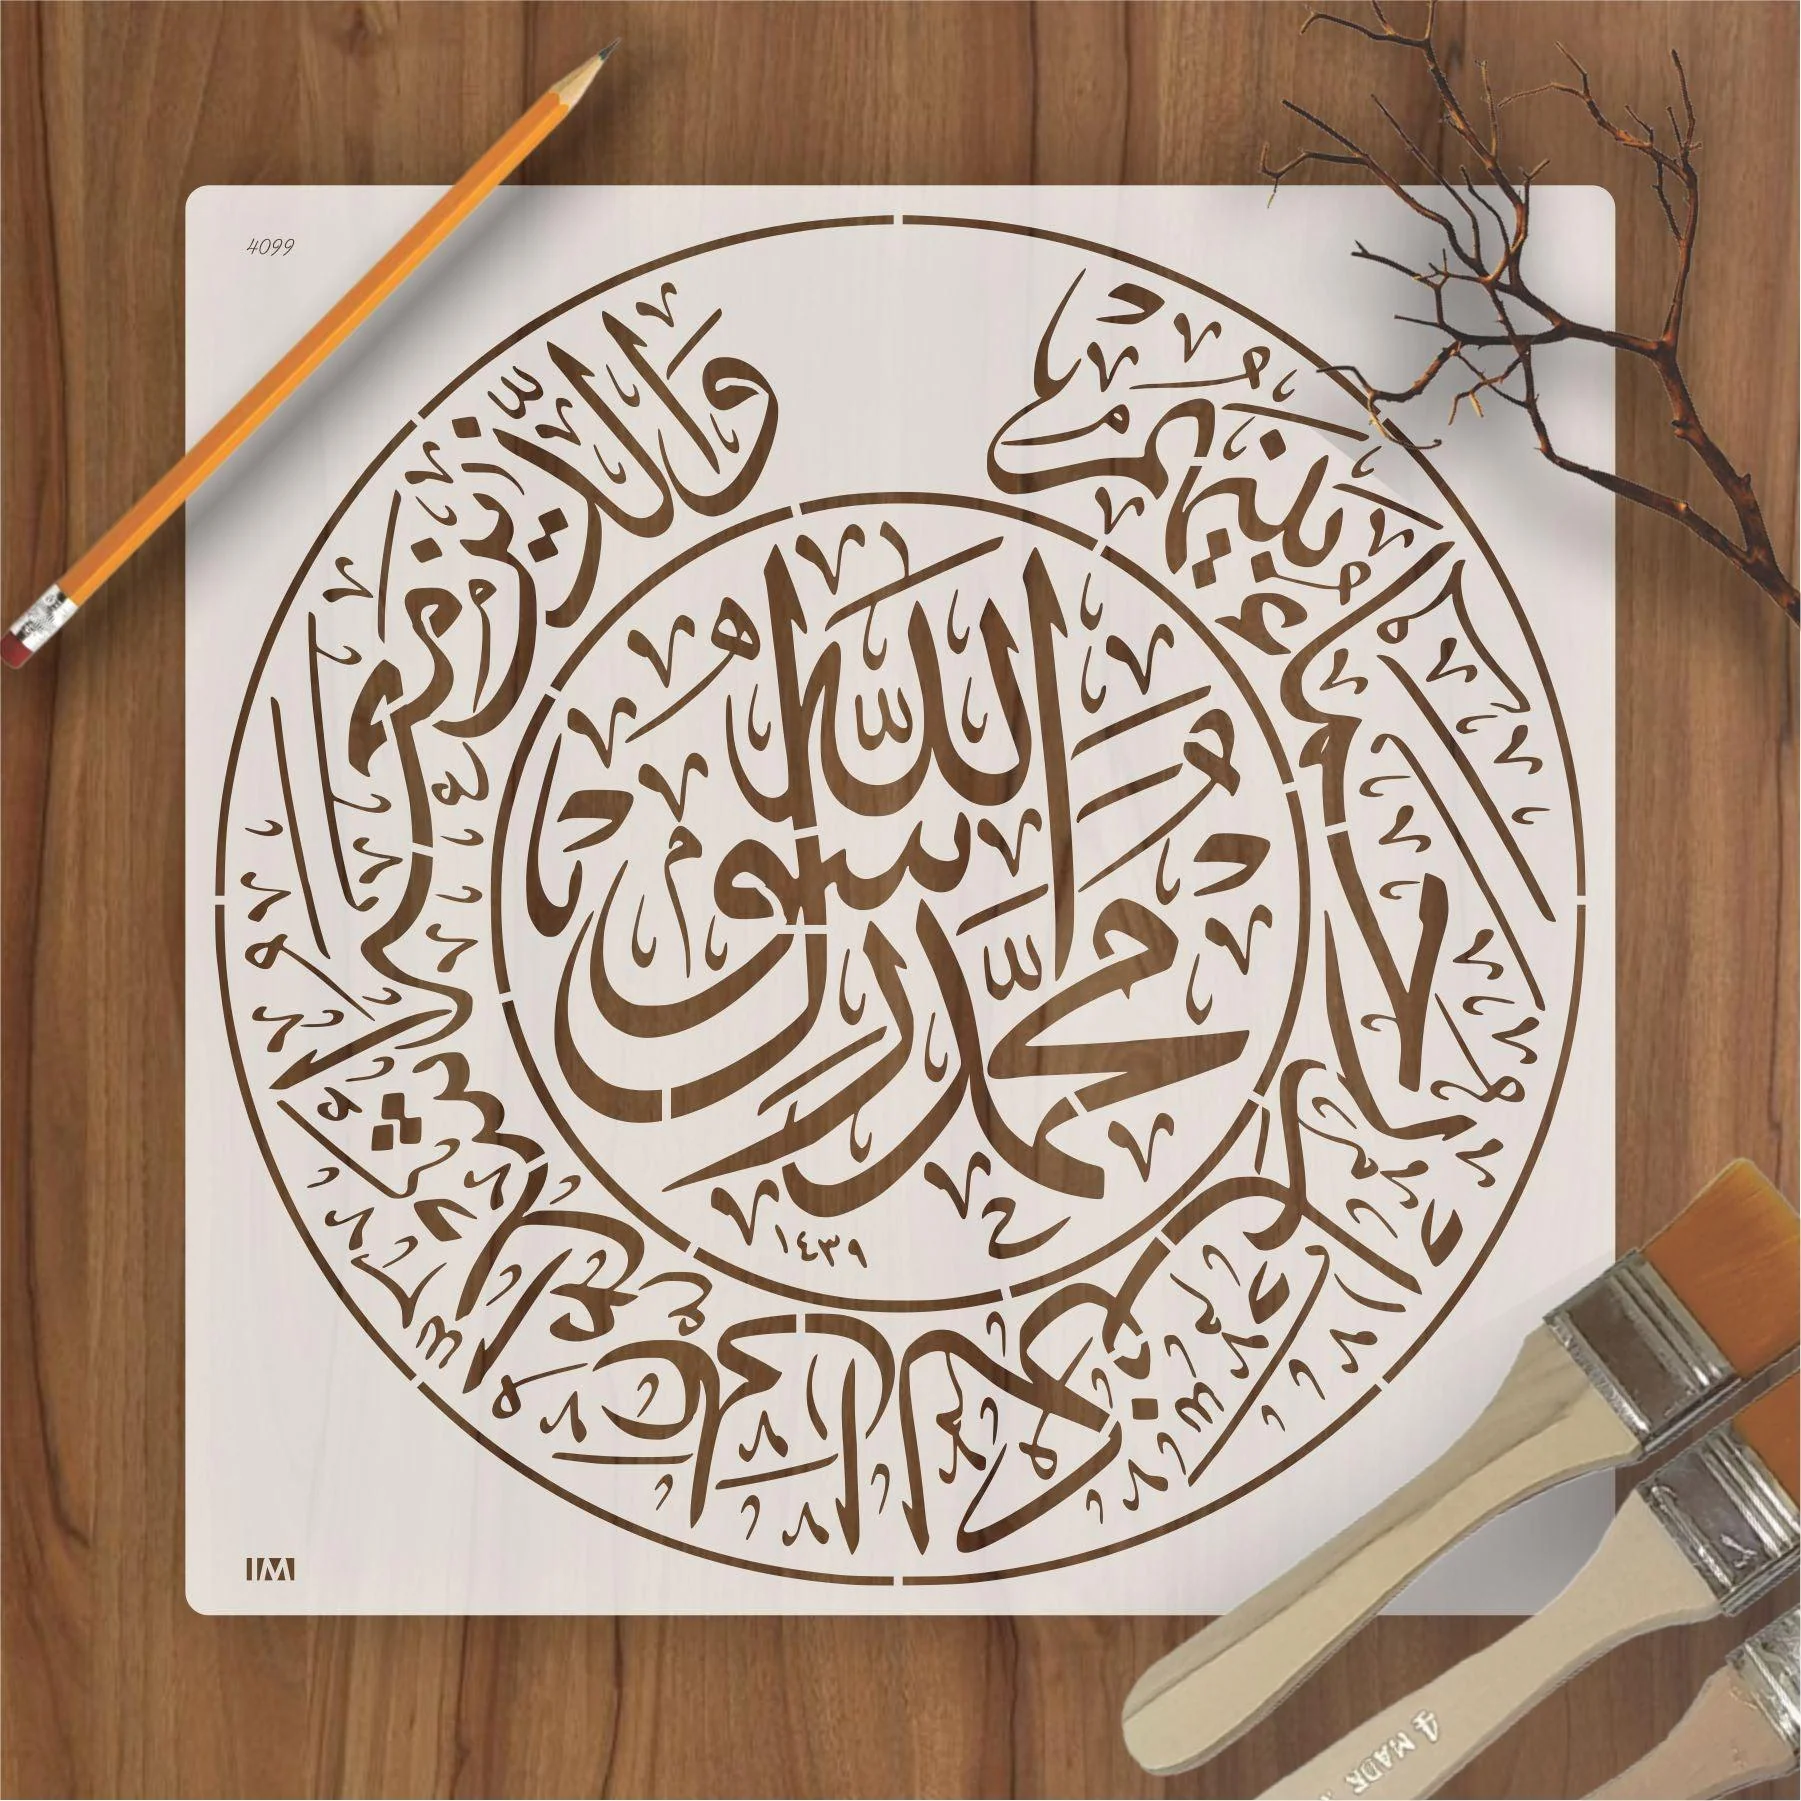 4099
محمد رسول الله
والذين معه أشداء على الكفار رحماء بينهم
١٤٣٩
IM
4 MADE